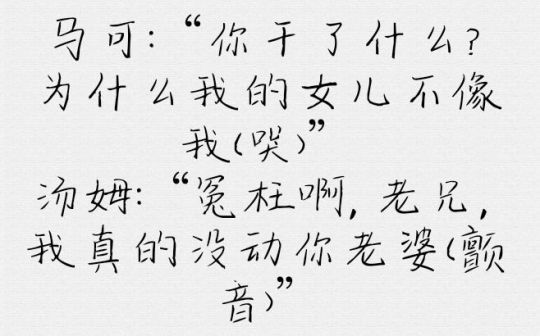 马可：“你干了什么？
为什么我的女儿不像
我（哭）”
汤姆：“冤枉啊，老兄，
我真的没动你老婆（颤
音）”